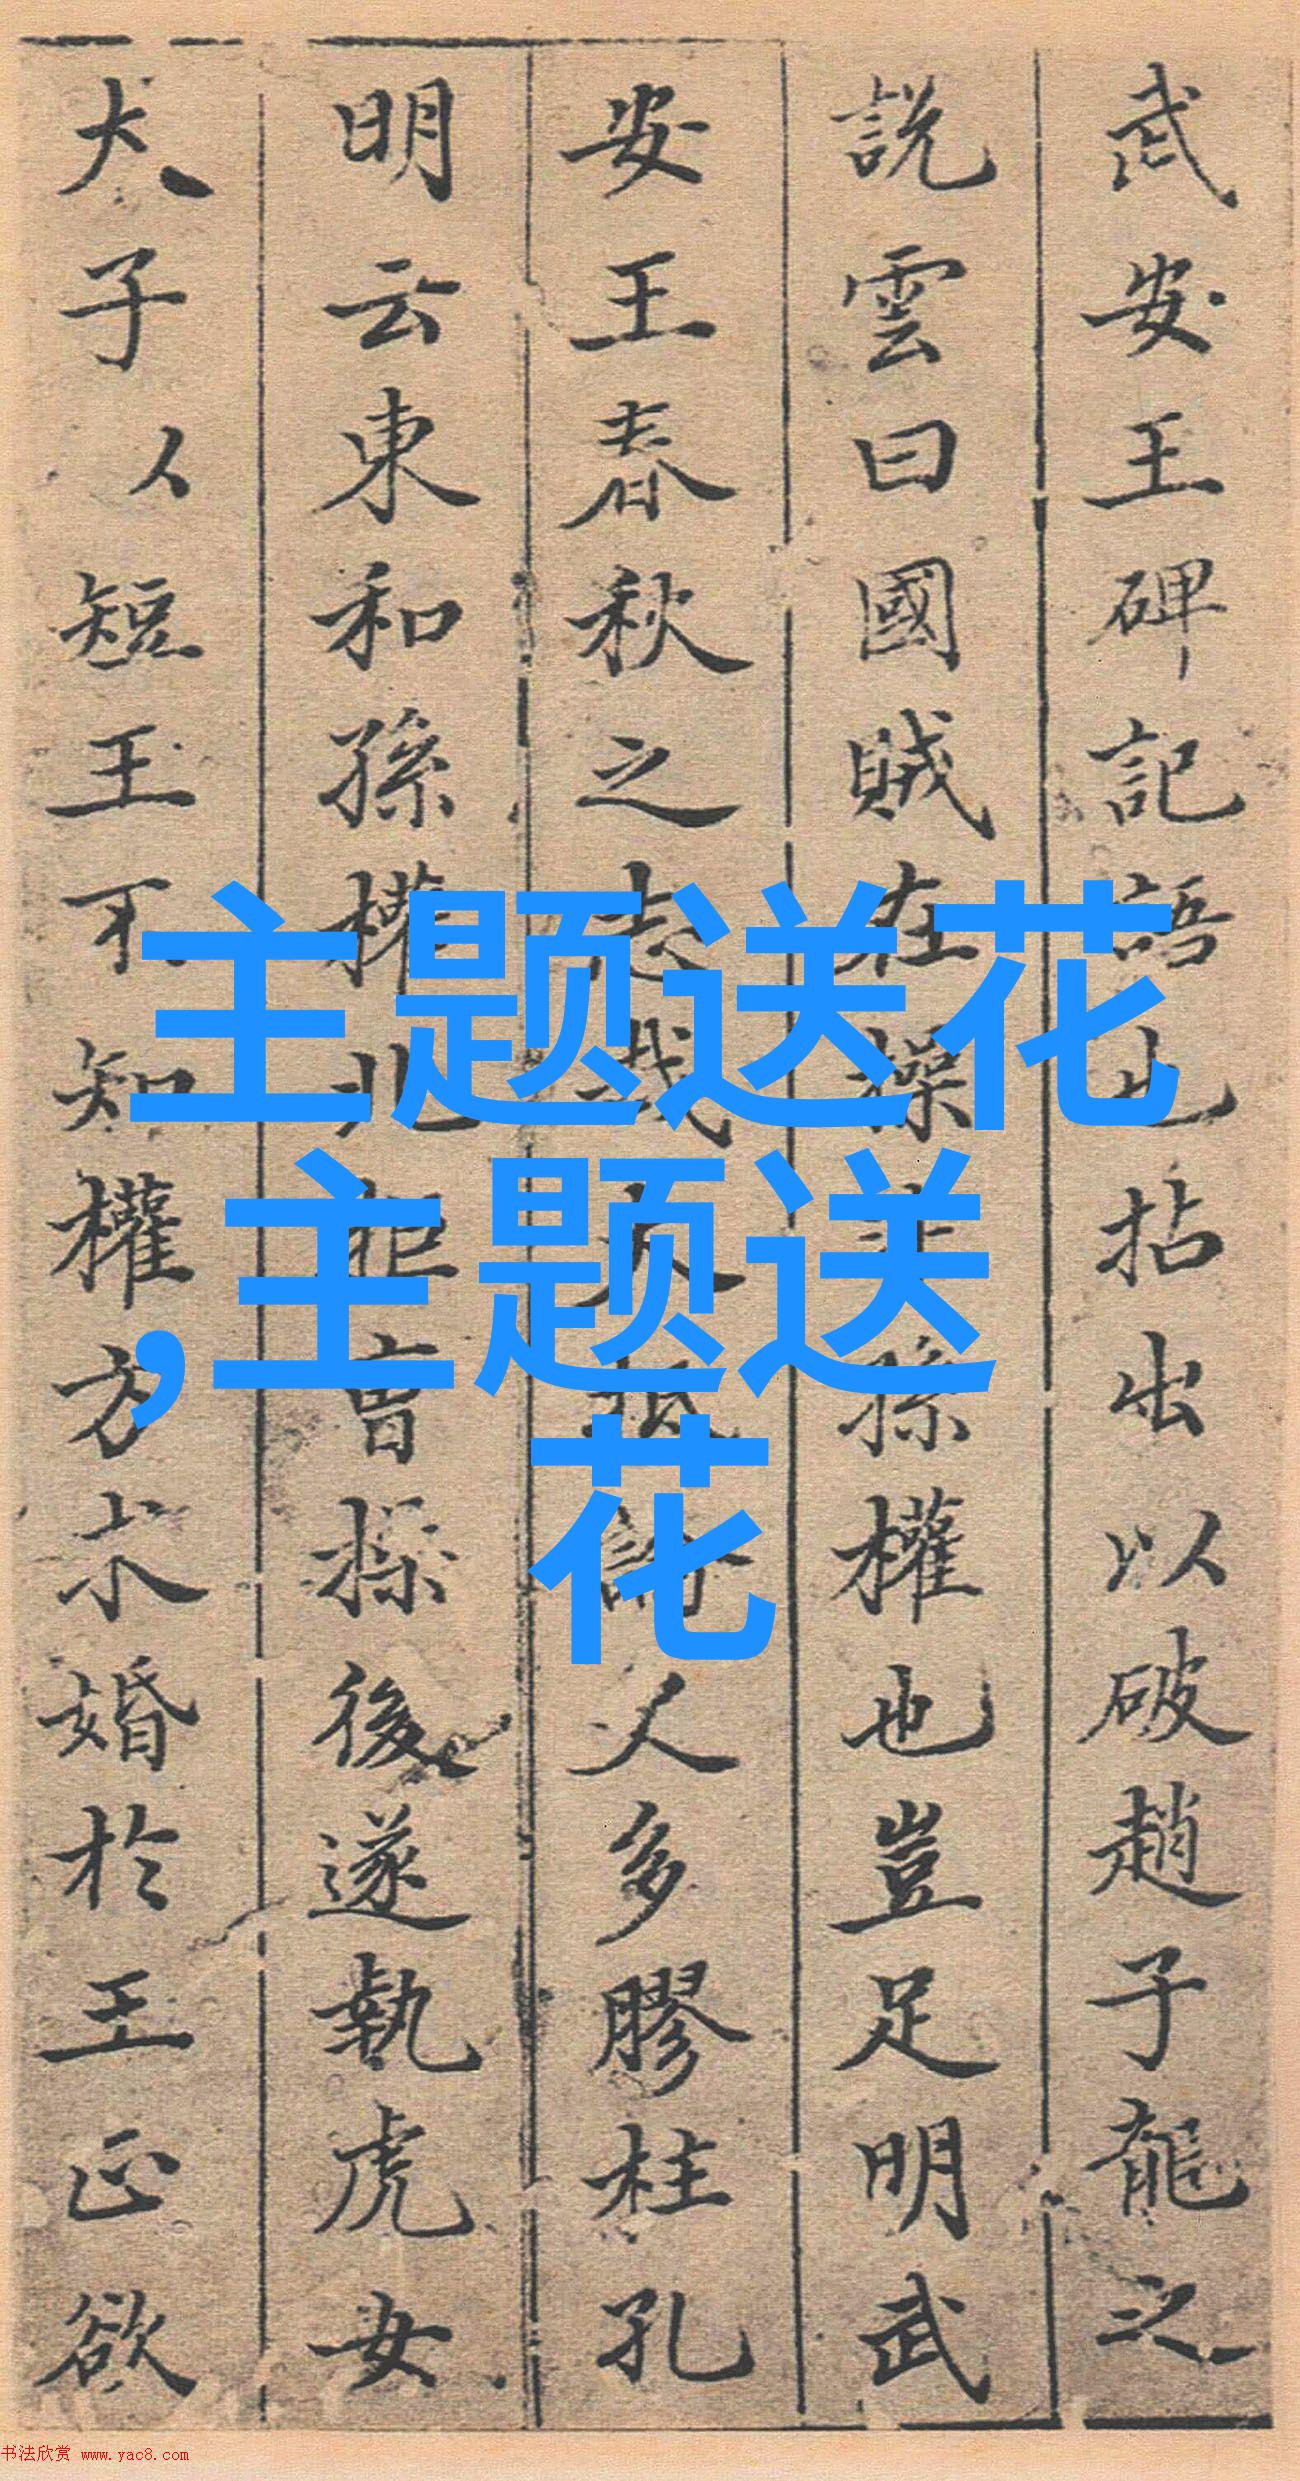 武安王碑記語也拈出以破趙子龍之
說雲曰國賊在操 孫權也豈足明武
安王春秋之志哉 人多膠柱孔
明云東和孫權北拒曹操後遂執虎女
犬子 短王不知權方求婚於王正欲
主题送花
,主题送
花
书法欣赏 www.yac8.com